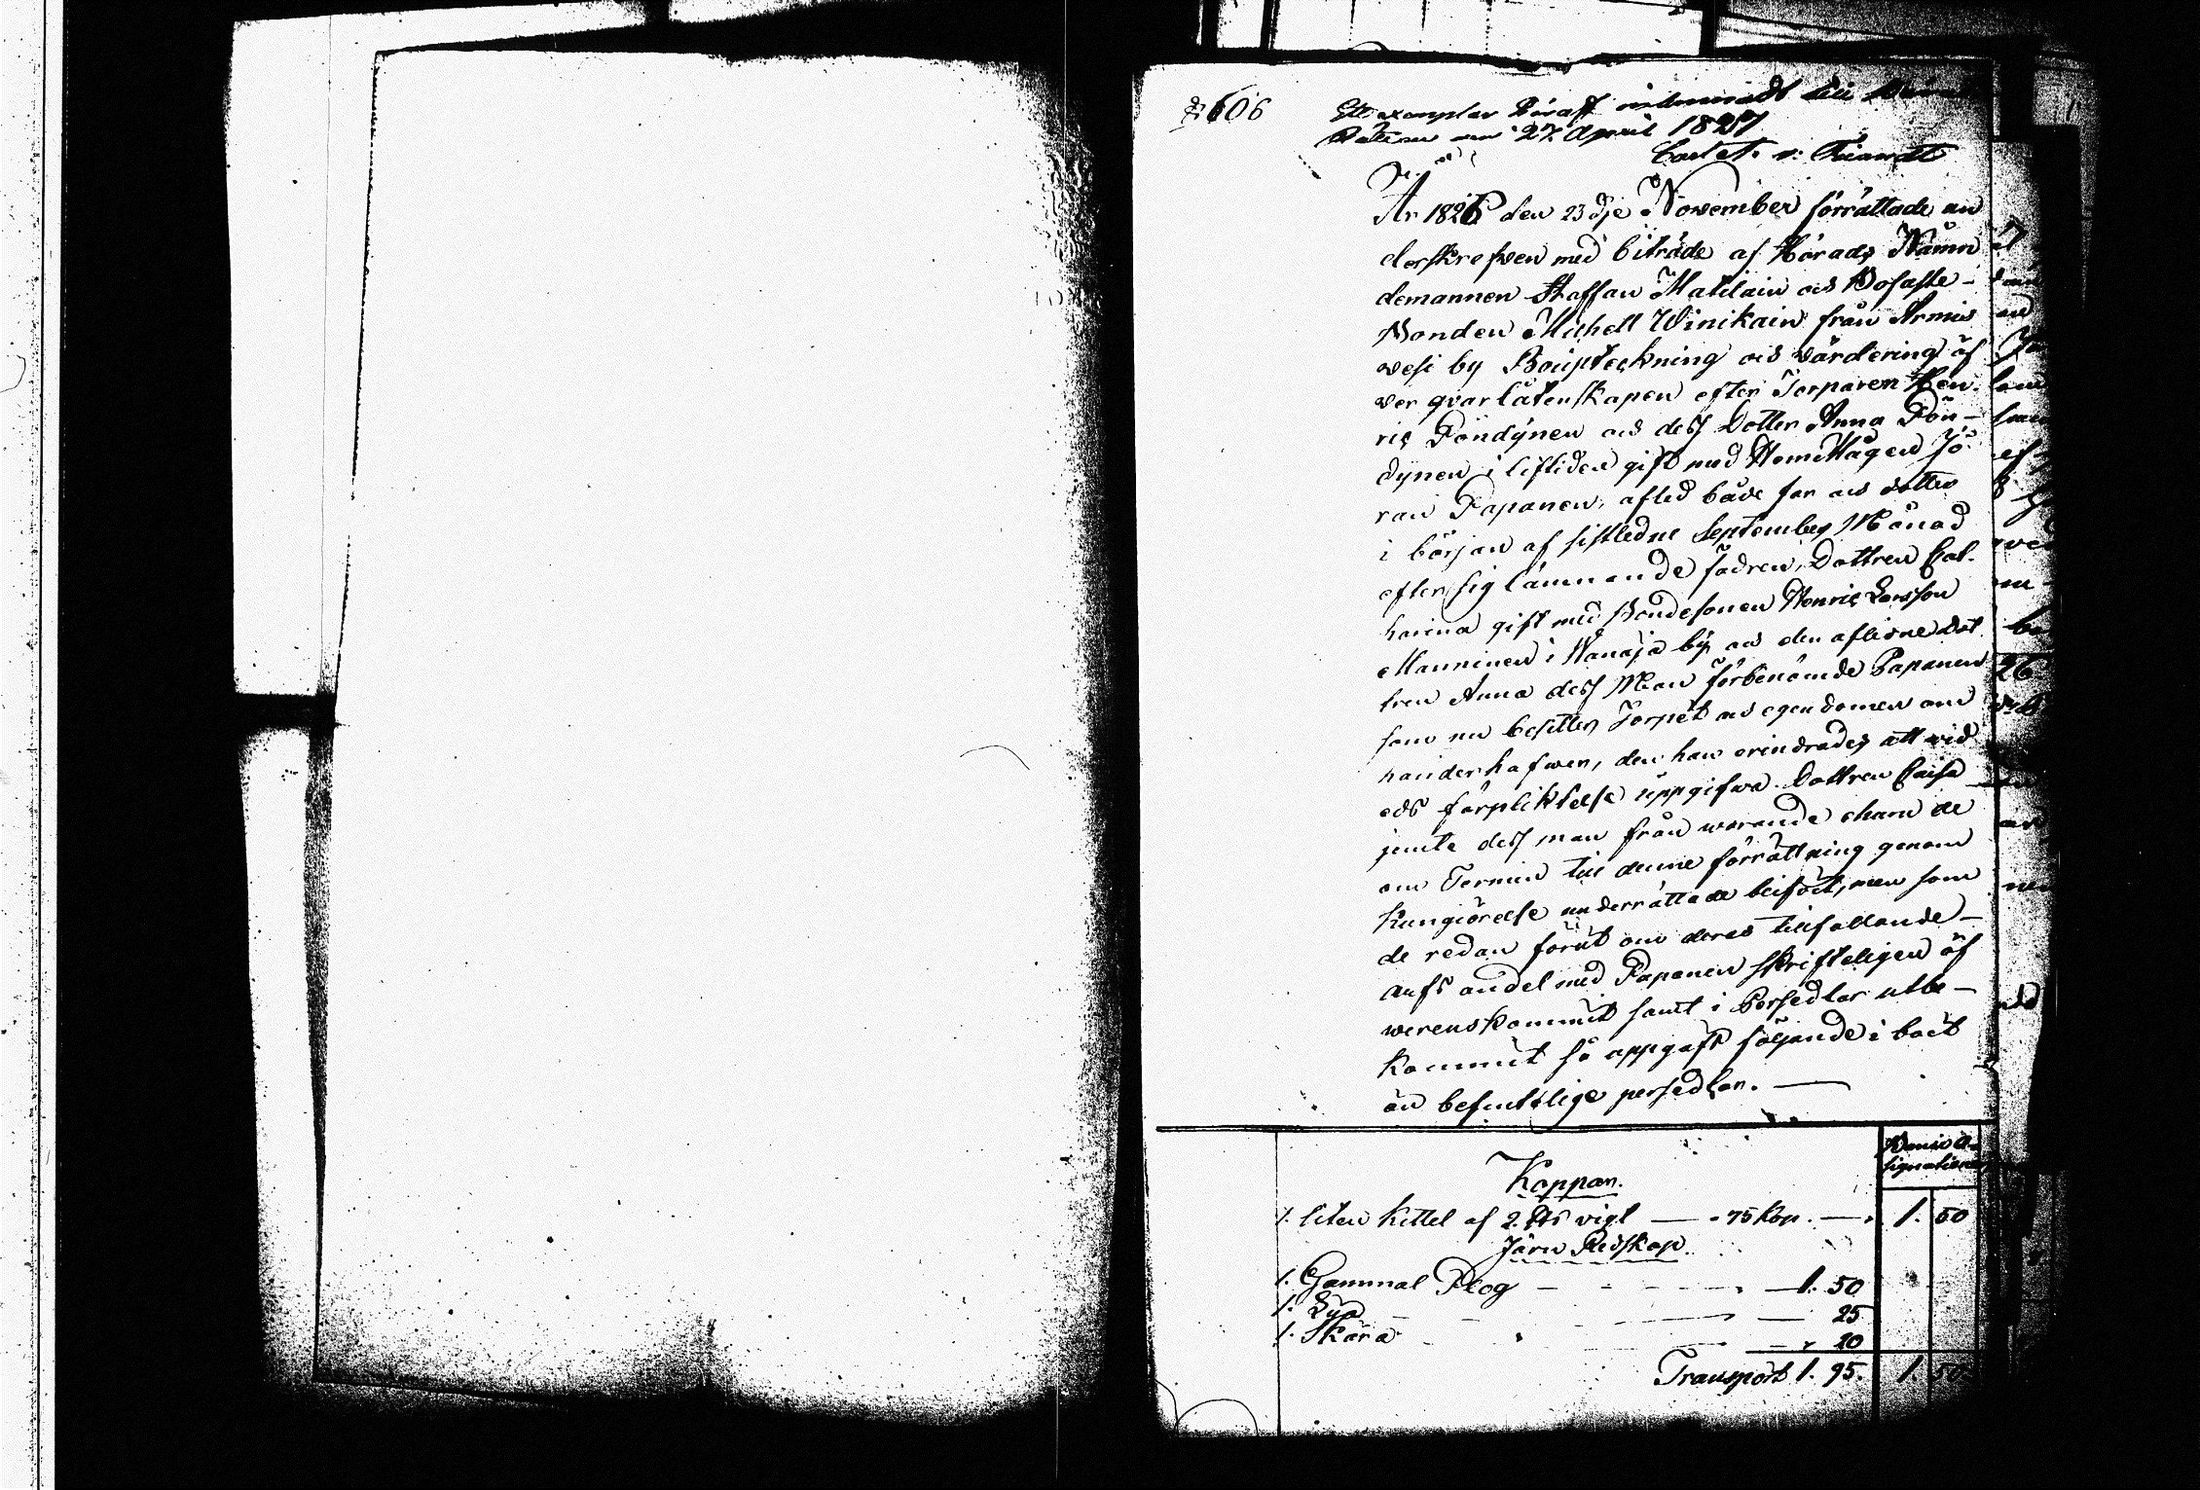 № 606
Ett exemplar häraf inlemnadt till
Rätten den 27 April 1827
Carl A. v:
År 1826 den 23dje November förrättade un
derskrefven med biträde af Härads Nämn
demannen Staffan Matilain och Bofaste-
Bonden Michell Winikain från Armis
vesi by Bouptekning och värdering öf
ver qvarlåtenskapen efter Torparen Hen-
ric Pöndynen och dess Dotter Anna Pön-
dynen i liftiden gift med HemMågen Jö
ran Papanen, afled både far och dotter
i början af sistledne September Månad
efter sig lämnande fadren, Dottren Cat-
harina gift med Bondesonen Henric Larsson
Manninen i Wanaja by och den aflidne dot
tren Anna dess Man förbenämde Papanen
som nu besitter Torpet och egendomen om
händerhafver, den han erindrades att vid
eds förpliktelse uppgifva. Dottren Caisa
jemte dess man från varande ehuru de
om Termin till denne förrättning genom
Kungörelse underrättade blifvit, men som
de redan förut om deras tillfallande
arfs andel med Papanen skrifteligen öf
verenskommit samt i Persedlar utbe-
kommit så uppgafs följande i boet
än befintelige persedlar. —
Banco A-
signationer
Koppar.
1. liten Kittel af 2. ℔s vigt — 75 Kop. — 1. 50
Järn Redskap.
1. Gammal Plog — 1. 50
1. Lya — 25
1. Skära — 20
Transport 1. 95. 1. 50.